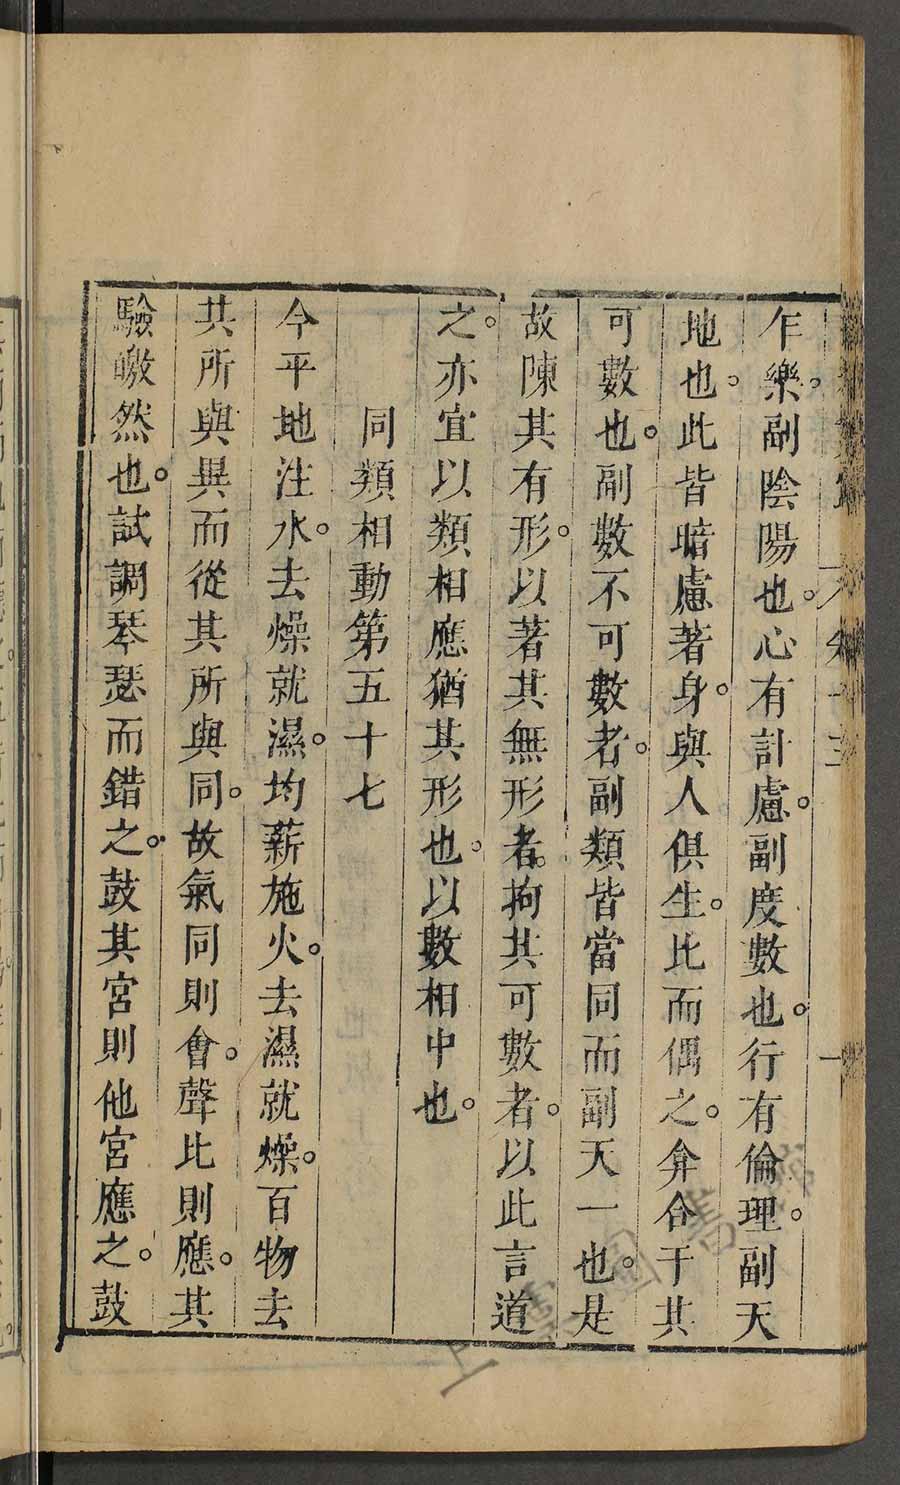 乍樂。副陰陽也。心有計慮。副度數也。行有倫理。副天
地也。此皆暗慮著身。與人俱生。比而偶之。弇合于其
可數也。副數不可數者。副類皆當同而副天一也。是
故陳其有形。以著其無形者。拘其可數者。以此言道
之。亦宜以類相應猶其形也。以數相中也。
同類相動第五十七
今平地注水。去燥就濕。均薪施火。去濕就燥。百物去
其所與異而從其所與同。故氣同則會。聲比則應。其
驗皦然也。試調琴瑟而錯之。鼓其宮則他宮應之。鼓